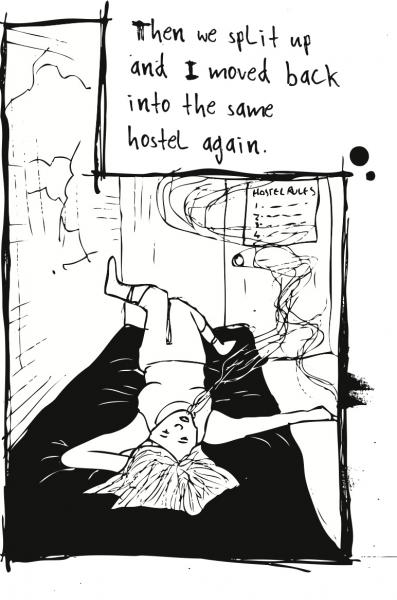 Then we split up
and I moved back
into the same
hostel again.
HOSTEL RULES
1.
2.
3.
4.